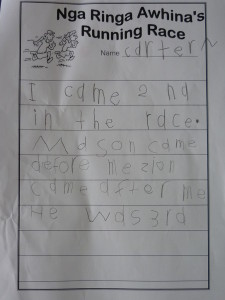 Nga Ringa Awhina's
Running Race
Name carter N
I came 2 nd
in the race.
Mason came
before me zion
came after me
He was 3rd